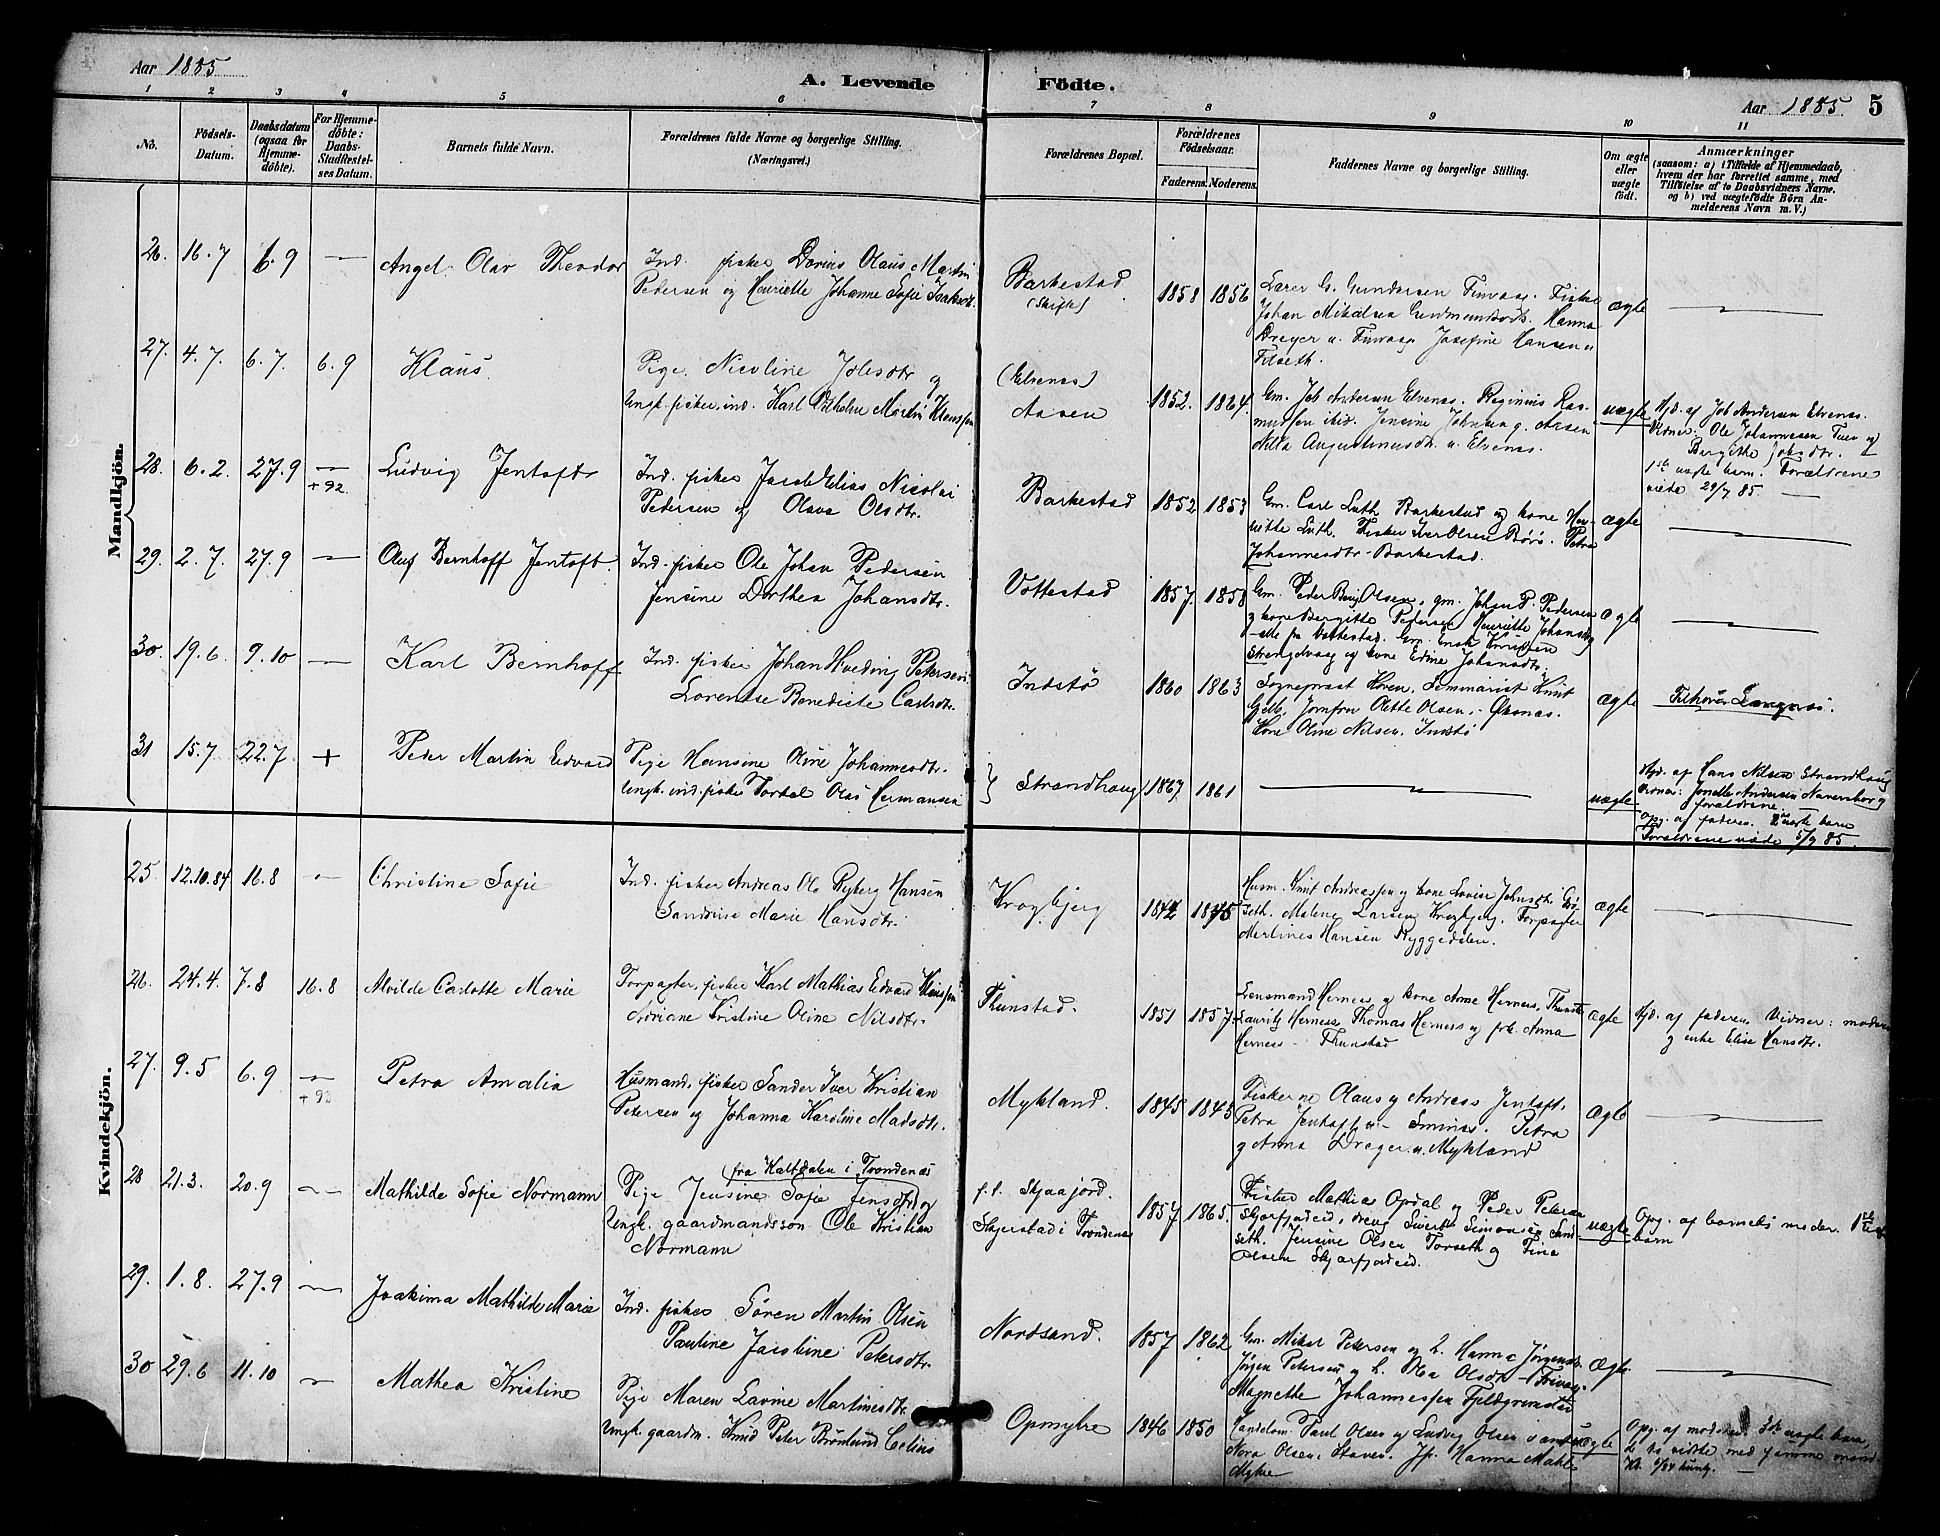 Aar 1885
A. Levende Födte.
Aar 1885 5
1 2 3 4 5 6 7 8 9 10 11
No. Födsels-Datum. Daabsdatum (ogsaa for Hjemme-döbte). For Hjemme-döbte: Daabs-Stadfæstel-ses Datum. Barnets fulde Navn. Forældrenes fulde Navne og borgerlige Stilling. (Næringsvei.) Forældrenes Bopæl. Forældrenes Födselsaar. Faderens. Moderens. Faddernes Navne og borgerlige Stilling. Om ægte eller uægte födt. Anmærkninger (saasom: a) i Tilfælde af Hjemmedaab, hvem der har forrettet samme, med Tilföielse af to Daabsvidners Navne. og b) ved uægtefödte Börn An-melderens Navn m. V.)
Mandkjön.
26. 16.7 6.9 — Angel Olav Theodor
Ind. fisker Dorius Olaus Martin
Pedersen og Henriette Johanne Sofie
Barkestad
(Skifte)
1858 1856
Lærer G. Gundersen Finvaag. Fisker
Johan Mikalsen Hanna
Dreyer u. Finvaag Josefine Hansen u
Tilseth.
ægte —
27. 4.7. 6.7. 6.9 Klaus.
Pige. Nicoline Jobsdtr og
Ungk. fisker, ind. Karl Vilhelm Martin Klaussen
(Elvenæs)
Aasen
1852. 1864.
Gm. Job Andersen Elvenæs. Reginius Ras-
mussen ibid. Jensine Johnsen g. Aasen
Nilla Augustinusdtr. u. Elvenæs.
uægte
Hjd. af Job Andersen Elvenæs.
Vidner: Ole Johannesen Tuen og
Bergithe Jobsdtr.
1ste uægte barn. Forældrene
viede 29/7 85. —
28. 6.2. 27.9 — +92. Ludvig Jentoft
Ind. fisker Jacob Elias Nicolai
Pedersen og Olava Olsdtr.
Barkestad
1852 1853
Gm. Carl Luth Barkestad og kone Hen-
riette Luth. Fisker Iver Olsen Börö. Petra
Johannesdtr. Barkestad.
ægte —
29. 2.7. 27.9 — Oluf Bernhoff Jentoft.
Ind. fisker Ole Johan Pedersen
Jensine Dorthea Johansdtr.
Vottestad
1857. 1858
Gm. Peder Berg Olsen, gm. Johan P. Pedersen
og kone Bergitte Pedersen Henriette Johansdtr
alle fra Vottestad. Gm. Enok Knudsen
Strengelvaag og kone Edine Johansdtr.
ægte —
30. 19.6. 9.10 — Karl Bernhoff
Ind. fisker Johan Hveding Petersen
Lorentse Benedicte Carlsdtr.
Indstö
1860 1863
Sogneprest Hoven. Seminarist Knut
Jomfru Olette Olsen. Öksnæs.
Kone Oline Nilsen. Indstö
ægte
Tilhører Langenes.
31 15.7 22.7 + Peder Martin Edvard
Pige Hansine Oline Johannesdtr.
Ungk. ind. fisker Tortel Olai Hermansen
} Strandhaug
1867 1861 —
uægte
Hjd. af Hans Nilsen Strandhaug
Vidner: Jonette Andersen og
forældrene.
Opg. af faderen. 2det uægte barn
Forældrene viede 5/9 85.
Kvindekjön.
25. 12.10.84 16.8 — Christine Sofie
Ind. fisker Andreas Ole Ryberg Hansen
Sandrine Marie Hansdtr.
Krogbjerg
1842 1845
Husm. Knut Andreassen og kone Lovise Johnsdtr.
Malene Larsen Krogbjerg. Forpagter
Martines Hansen Ryggedalen.
ægte —
26. 24.4. 7.8 16.8 Alvilde Carlotte Marie
Forpagter, fisker Karl Mathias Edvard Klaussen
Adriane Kristine Oline Nilsdtr.
Thunstad.
1851 1857.
Lensmand Herness og kone Anna Herness, Thunstad
Lauritz Herness, Thomas Herness og frk. Anna
Herness — Thunstad
ægte
Hjd. af faderen. Vidner: moderen
og enke Elise Hansdtr.
27. 9.5 6.9 — +92 Petra Amalia
Husmand, fisker Sander Iver Kristian
Petersen og Johanna Karoline Madsdtr.
Mykland.
1845 1845
Fiskerne Olaus og Andreas Jentoft,
Petra Jentoft u. Sminæs. Petra
og Anna Dreyer u. Mykland
ægte —
28 21.3. 20.9 — Mathilde Sofie Normann
fra Kaltdalen i Trondenæs
Pige Jensine Sofie Jensdtr og
Ungk. gaardmandssön Ole Kristian
Normann
f.t. Skjaafjord.
Skjerstad i Trondenæs
1857 1865.
Fisker Mathias Opdal og Peder Petersen
Skjærfjordeid, dreng Sivert Simonsen Sand-
seth. Jensine Olsen Torseth og Fina
Olsen Skjærfjordeid.
uægte
Opg. af barnets moder. 1ste uægte
barn
29. 1.8. 27.9 — Joakima Mathilde Marie
Ind. fisker Sören Martin Olsen
Pauline Jacobine Petersdtr.
Nordsand.
1857 1862
Gm. Mikal Petersen og h. Hanna Jörgensdtr
Jörgen Petersen og h. Olsdtr — Finvaag.
Magnethe Johannessen
ægte —
30 29.6 11.10 — Mathea Kristine
Pige Maren Lavine Martinesdtr
Ungk. gaardm. Knud Peter Brönlund Celius
Opmyhre
1846 1850
Handelsm. Paul Olsen og Ludvig Olsen
Nora Olsen, Staven. Jf. Hanna
Myhre
uægte
Opg. af moderen. 3die uægte barn,
de to sidste med samme mand.